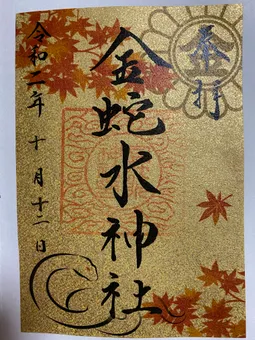 奉拝
金蛇水神社
令和二年十月十二日